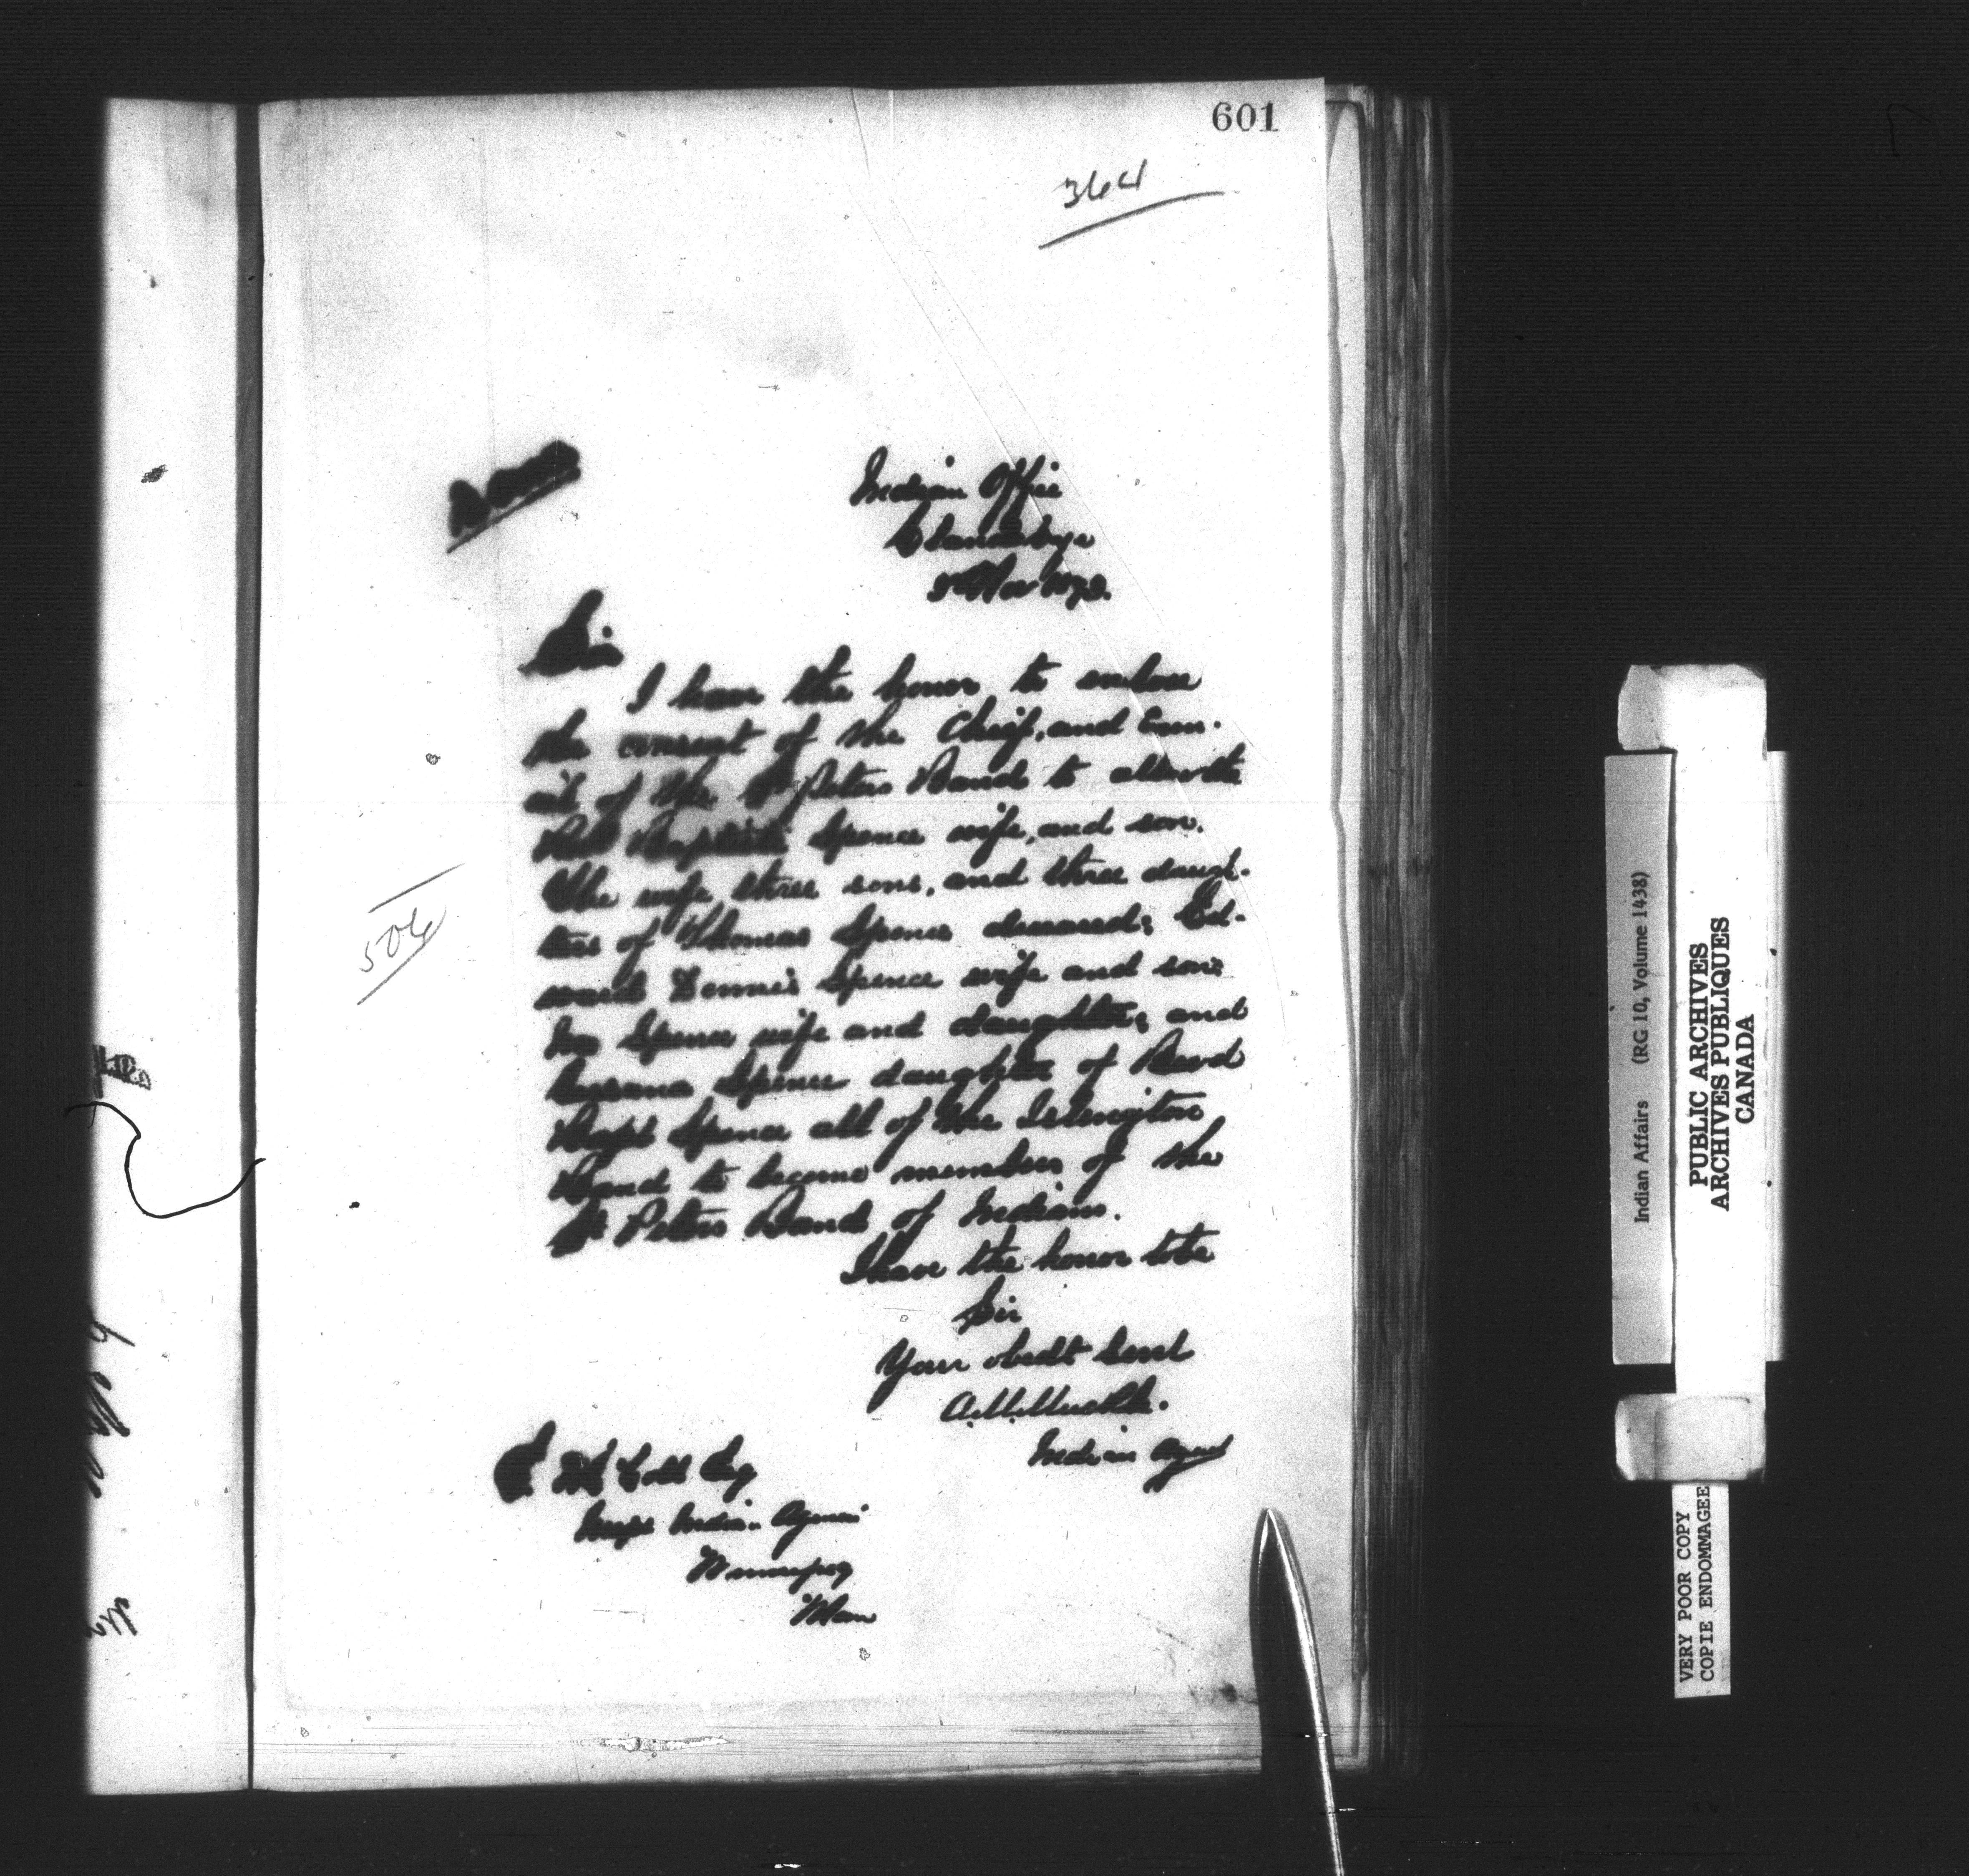 601
364
Indian Office
Clandeboye
Nov
Sir
I have the honor to enclose
the consent of the Chief, and Coun-
cil of the St Peters Band to allow the
Revd Baptiste Spence wife, and son.
The wife three sons, and three daugh-
ters of Thomas Spence deceased; Ed-
ward Dennis Spence wife and son;
Spence wife and daughter; and
Susana Spence daughter of Revd
Bapt Spence all of the Islington
Band to become members of the
St Peters Band of Indians.
I have the honor to be
Sir
Your obedt Servt
A. M. Muckle.
Indian Agent
E. McColl Esq
Inspr Indian Agencies
Winnipeg
Man
506
Indian Affairs (RG 10, Volume 1438)
PUBLIC ARCHIVES
ARCHIVES PUBLIQUES
CANADA
VERY POOR COPY
COPIE ENDOMMAGEE